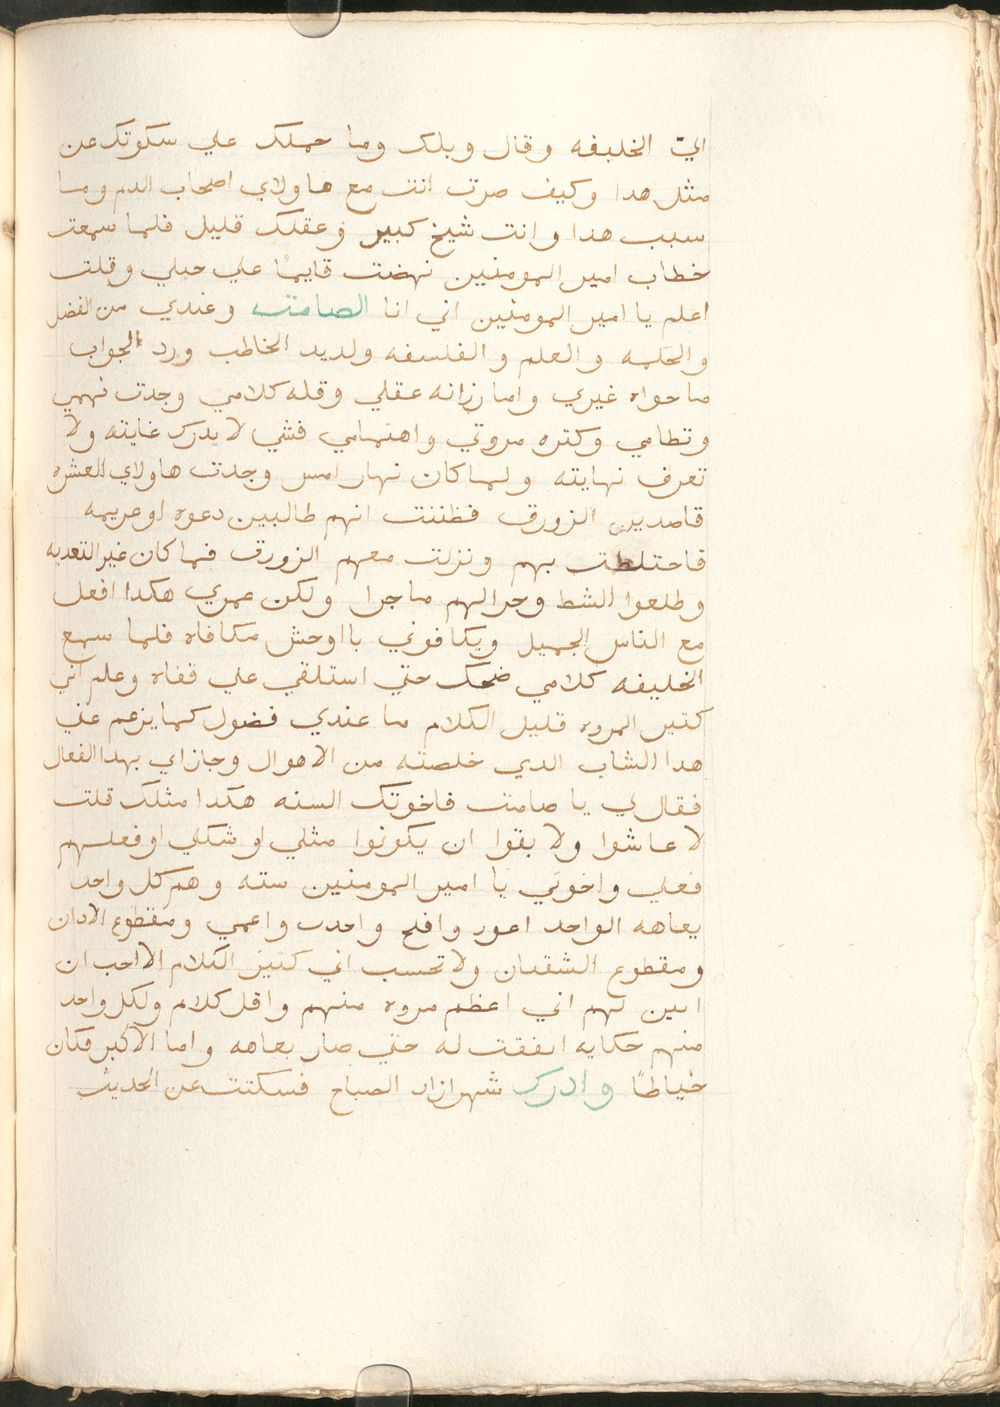 اليّ الخليفه وقال ويلك وما حملك علي سكوتك عن
مثل هدا وكيف صرت انت مع هاولاي اصحاب الدم وما
سبب هدا وانت شيخ كبير وعقلك قليل فلما سمعت
خطاب امير المومنين نهضت قايمًا علي حيلي وقلت
اعلم يا امير المومنين اني انا الصامت وعندي من الفضل
والحكمه والعلم والفلسفه ولديد الخاطب ورد الجواب
ما حواه غيري واما رزانه عقلي وقله كلامي وجدت فهمي
وتطامي وكتره مروتي واهتمامي فشي لا يدرك غايته ولا
تعرف نهايته ولما كان نهار امس وجدت هاولاي العشره
قاصدين الزورق فظننت انهم طالبين دعوه او عزيمه
فاحتلطت بهم ونزلت معهم الزورق فما كان غير التعديه
وطلعوا الشط وجرالهم ما جرا ولكن عمري هكدا افعل
مع الناس الجميل ويكافوني بااوحش مكافاه فلما سمع
الخليفه كلامي ضحك حتي استلقي علي قفاه وعلم اني
كتير المروه قليل الكلام ما عندي فضول كما يزعم عني
هدا الشاب الدي خلصته من الاهوال وجازاي بهدا الفعال
فقال لي يا صامت فاخوتك السته هكدا مثلك قلت
لا عاشوا ولا بقوا ان يكونوا مثلي او شكلي او فعلهم
فعلي واخوتي يا امير المومنين سته وهم كل واحد
بعاهه الواحد اعور وافلج واحدب واعمي ومقطوع الادان
ومقطوع الشفتان ولا تحسب اني كتير الكلام الا احب ان
ابين لهم اني اعظم مروه منهم واقل كلام ولكل واحد
منهم حكايه اتفقت له حتي صار بعاهه واما الاكبر فكان
خياطًا وادرك شهرازاد الصباح فسكتت عن الحديث